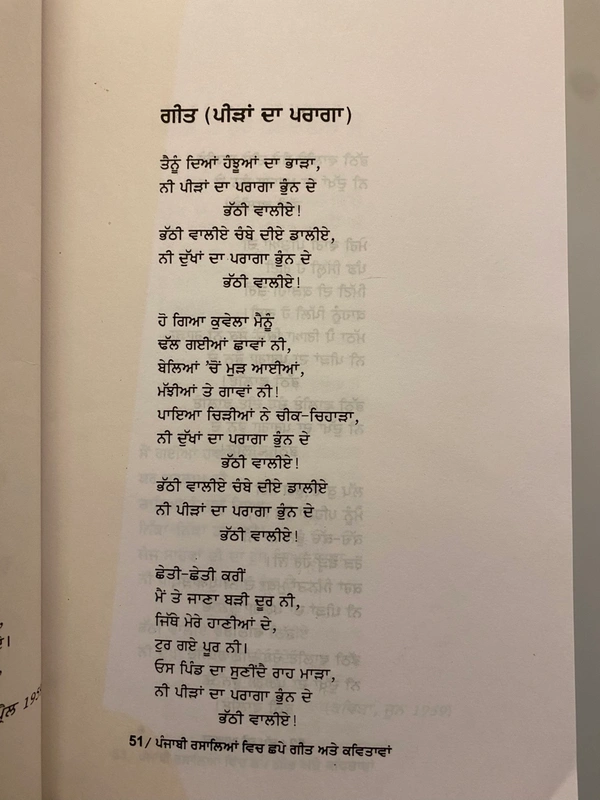 ਗੀਤ (ਪੀੜਾਂ ਦਾ ਪਰਾਗਾ)
ਤੈਨੂੰ ਦਿਆਂ ਹੰਝੂਆਂ ਦਾ ਭਾੜਾ,
ਨੀ ਪੀੜਾਂ ਦਾ ਪਰਾਗਾ ਭੁੰਨ ਦੇ
ਭੱਠੀ ਵਾਲੀਏ!
ਭੱਠੀ ਵਾਲੀਏ ਚੰਬੇ ਦੀਏ ਡਾਲੀਏ,
ਨੀ ਦੁੱਖਾਂ ਦਾ ਪਰਾਗਾ ਭੁੰਨ ਦੇ
ਭੱਠੀ ਵਾਲੀਏ!
ਹੋ ਗਿਆ ਕੁਵੇਲਾ ਮੈਨੂੰ
ਢੱਲ ਗਈਆਂ ਛਾਵਾਂ ਨੀ,
ਬੇਲਿਆਂ 'ਚੋਂ ਮੁੜ ਆਈਆਂ,
ਮੱਝੀਆਂ ਤੇ ਗਾਵਾਂ ਨੀ!
ਪਾਇਆ ਚਿੜੀਆਂ ਨੇ ਚੀਕ-ਚਿਹਾੜਾ,
ਨੀ ਦੁੱਖਾਂ ਦਾ ਪਰਾਗਾ ਭੁੰਨ ਦੇ
ਭੱਠੀ ਵਾਲੀਏ!
ਭੱਠੀ ਵਾਲੀਏ ਚੰਬੇ ਦੀਏ ਡਾਲੀਏ
ਨੀ ਪੀੜਾਂ ਦਾ ਪਰਾਗਾ ਭੁੰਨ ਦੇ
ਭੱਠੀ ਵਾਲੀਏ!
ਛੇਤੀ-ਛੇਤੀ ਕਰੀਂ
ਮੈਂ ਤੇ ਜਾਣਾ ਬੜੀ ਦੂਰ ਨੀ,
ਜਿੱਥੇ ਮੇਰੇ ਹਾਣੀਆਂ ਦੇ,
ਟੁਰ ਗਏ ਪੂਰ ਨੀ।
ਓਸ ਪਿੰਡ ਦਾ ਸੁਣੀਂਦੈ ਰਾਹ ਮਾੜਾ,
ਨੀ ਪੀੜਾਂ ਦਾ ਪਰਾਗਾ ਭੁੰਨ ਦੇ
ਭੱਠੀ ਵਾਲੀਏ!
51/ ਪੰਜਾਬੀ ਰਸਾਲਿਆਂ ਵਿਚ ਛਪੇ ਗੀਤ ਅਤੇ ਕਵਿਤਾਵਾਂ